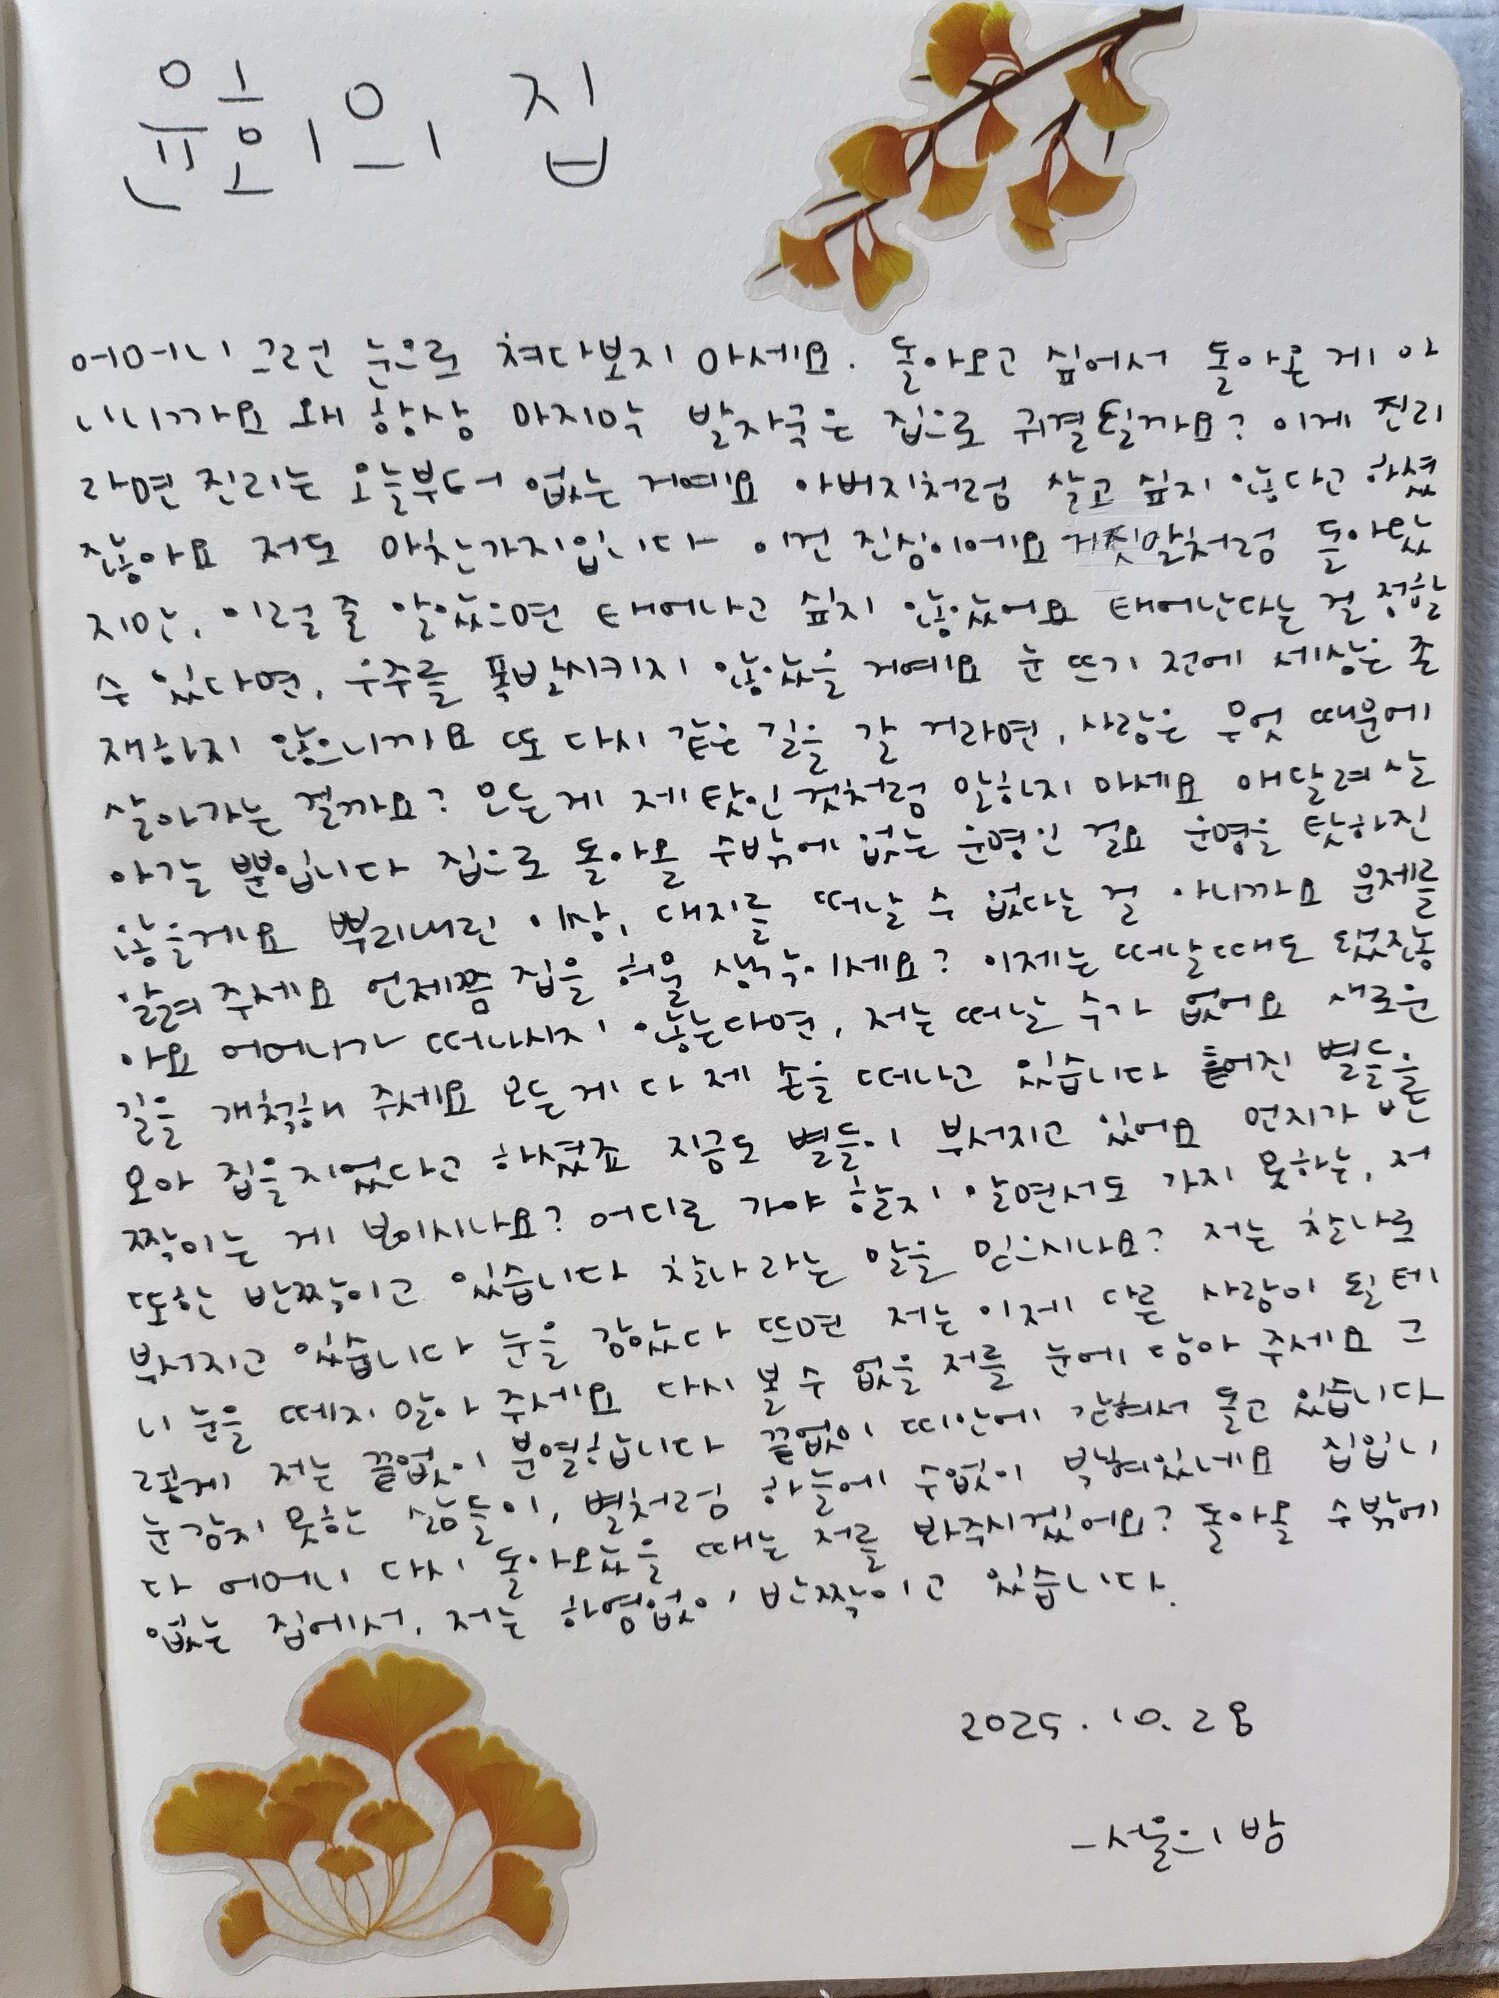 윤회의 집
어머니 그런 눈으로 쳐다보지 마세요. 돌아오고 싶어서 돌아온 게 아
니니까요 왜 항상 마지막 발자국은 집으로 귀결될까요? 이게 진리
라면 진리는 오늘부터 없는 거예요 아버지처럼 살고 싶지 않다고 하셨
잖아요 저도 마찬가지입니다 이건 진심이에요 거짓말처럼 돌아왔
지만, 이럴 줄 알았으면 태어나고 싶지 않았어요 태어난다는 걸 정할
수 있다면, 우주를 폭발시키지 않았을 거예요 눈 뜨기 전에 세상은 존
재하지 않으니까요 또 다시 같은 길을 갈 거라면, 사람은 무엇 때문에
살아가는 걸까요? 모든 게 제 탓인 것처럼 말하지 마세요 매달려 살
아갈 뿐입니다 집으로 돌아올 수밖에 없는 운명인 걸요 운명을 탓하진
않을게요 뿌리내린 이상, 대지를 떠날 수 없다는 걸 아니까요 문제를
알려 주세요 언제쯤 집을 허물 생각이세요? 이제는 떠날때도 됐잖
아요 어머니가 떠나시지 않는다면, 저는 떠날 수가 없어요 새로운
길을 개척해 주세요 모든 게 다 제 손을 떠나고 있습니다 흩어진 별들을
모아 집을 지었다고 하셨죠 지금도 별들이 부서지고 있어요 먼지가 반
짝이는 게 보이시나요? 어디로 가야 할지 알면서도 가지 못하는, 저
또한 반짝이고 있습니다 찰나라는 말을 믿으시나요? 저는 찰나로
부서지고 있습니다 눈을 감았다 뜨면 저는 이제 다른 사람이 될 테
니 눈을 떼지 말아 주세요 다시 볼 수 없을 저를 눈에 담아 주세요 그
렇게 저는 끝없이 분열합니다 끝없이 띠안에 갇혀서 돌고 있습니다
눈 감지 못한 삶들이, 별처럼 하늘에 수없이 박혀있네요 집입니
다 어머니 다시 돌아왔을 때는 저를 봐주시겠어요? 돌아올 수밖에
없는 집에서, 저는 하염없이 반짝이고 있습니다.
2025.10.28
-서울의 밤